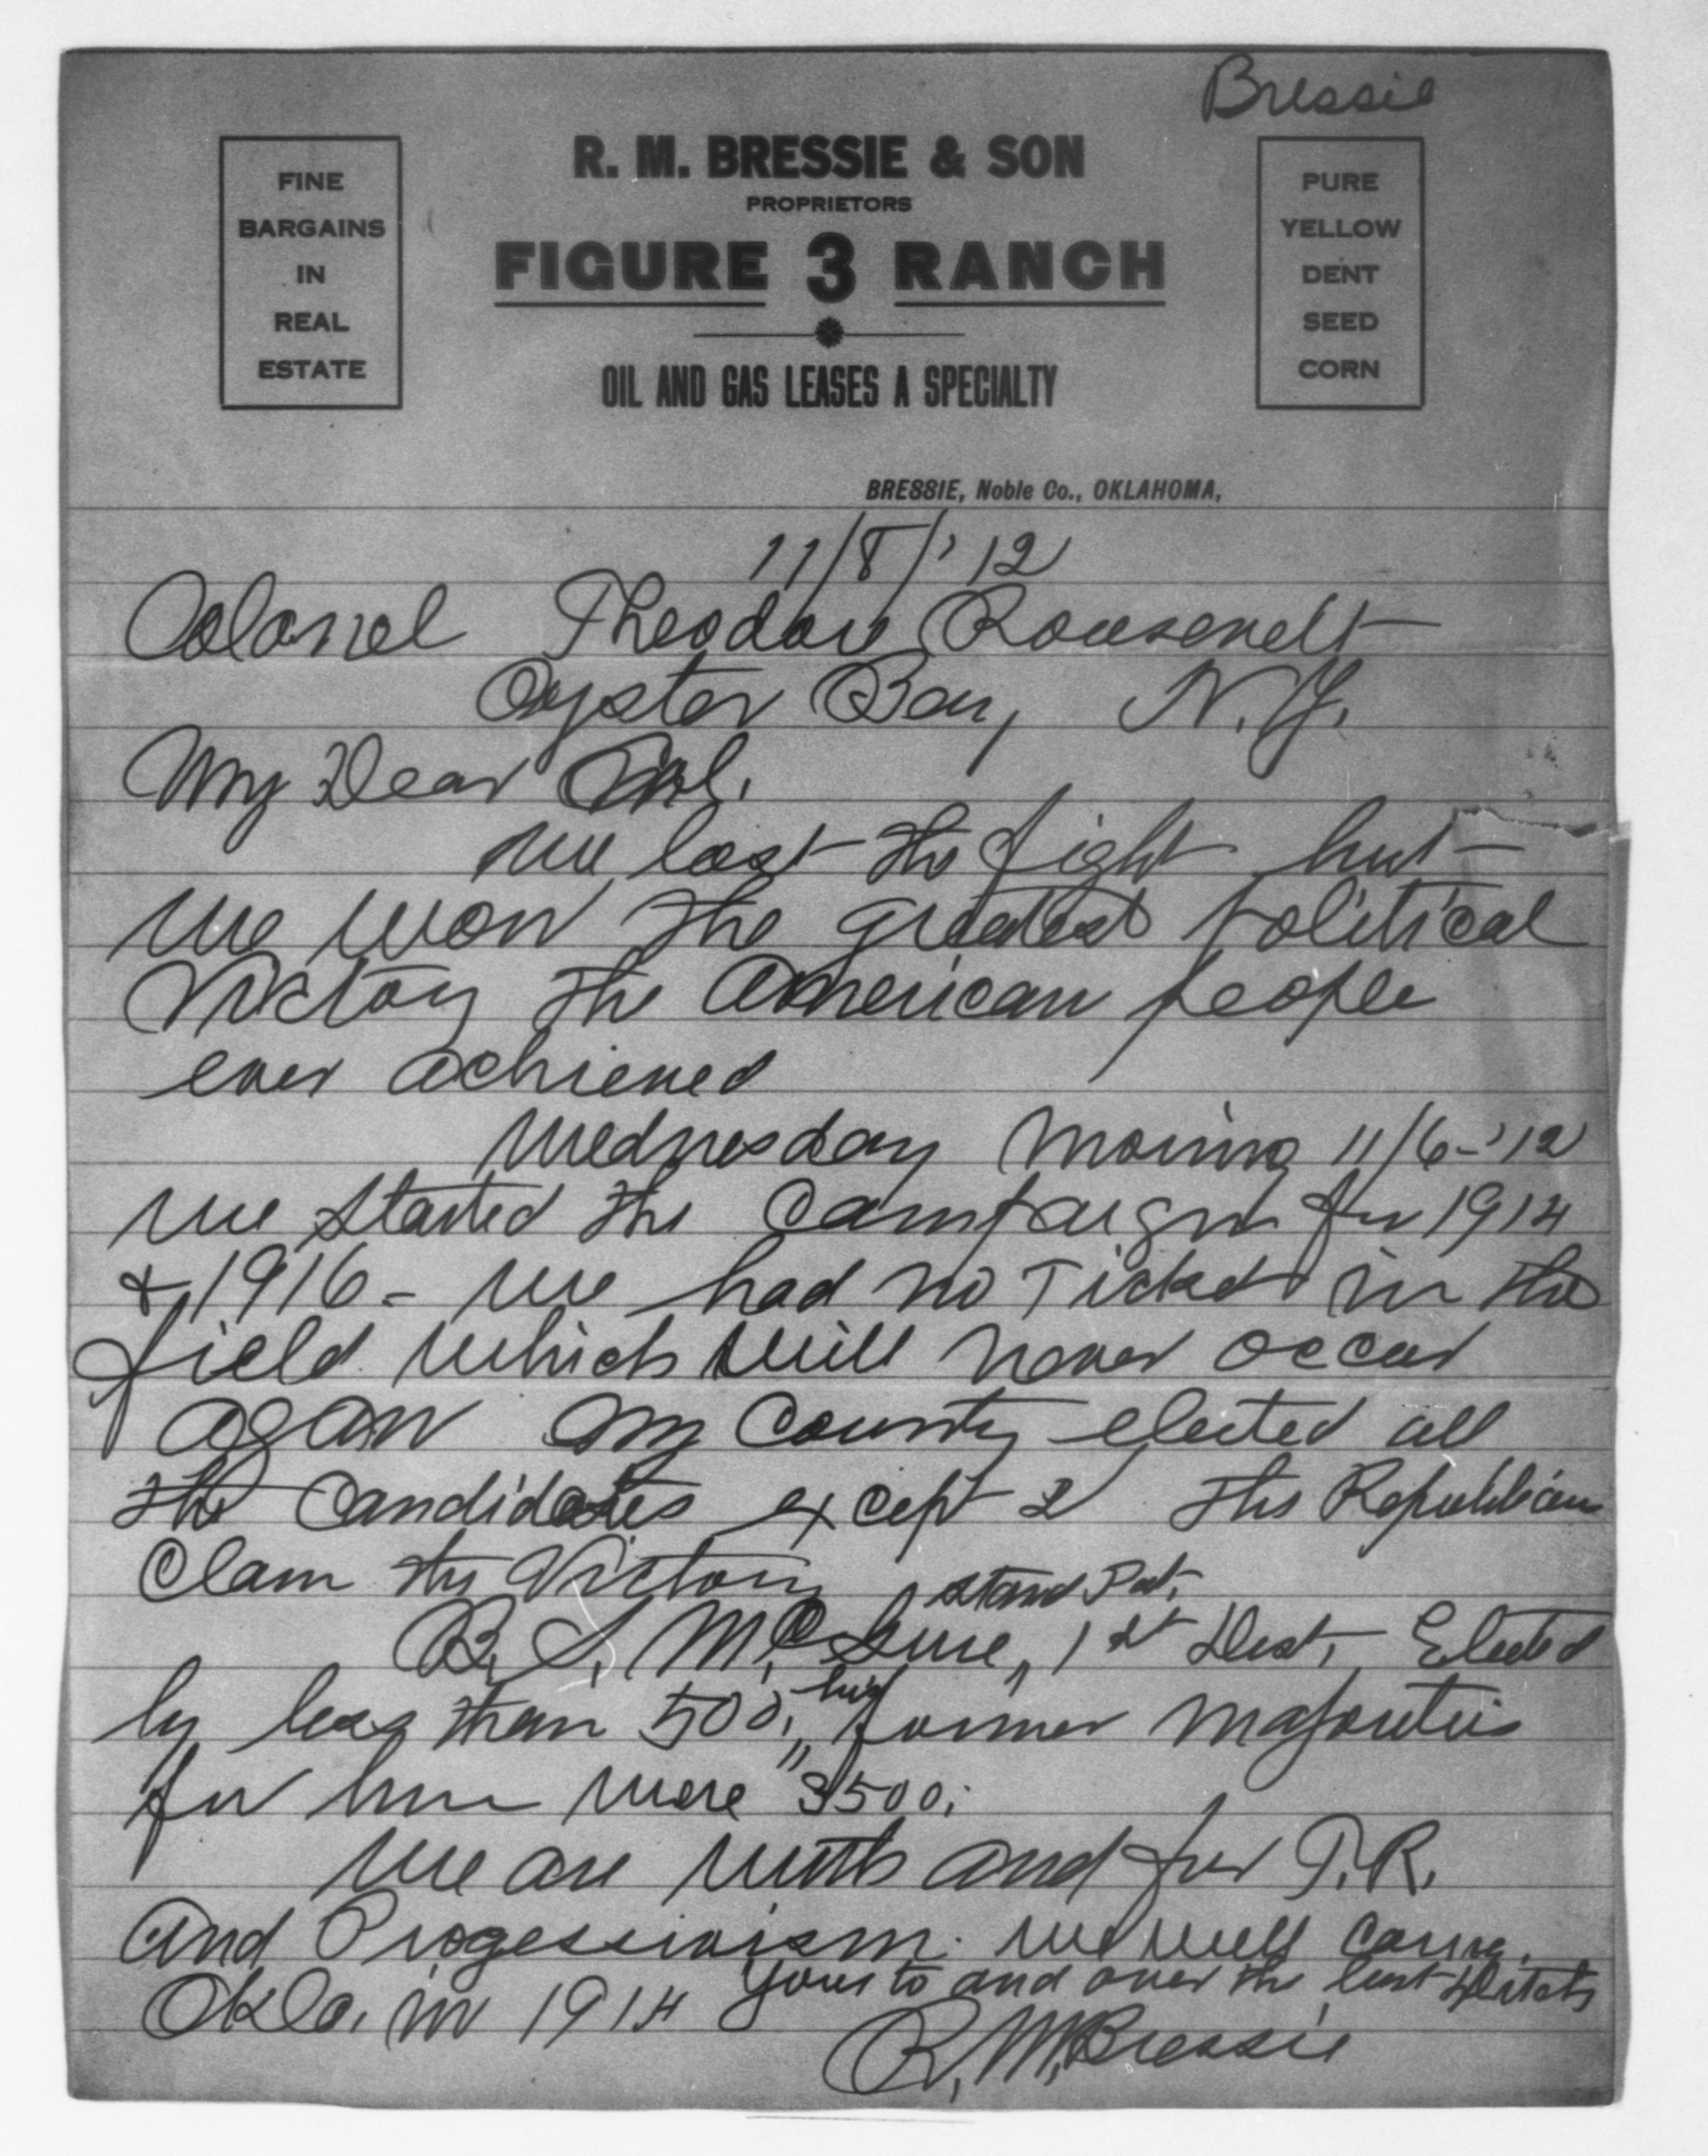 Bressie
FINE
BARGAINS
IN
REAL
ESTATE
R. M. BRESSIE & SON
PROPRIETORS
FIGURE 3 RANCH
OIL AND GAS LEASES A SPECIALTY
PURE
YELLOW
DENT
SEED
CORN
BRESSIE, Noble Co., OKLAHOMA,
11/8/'12
Colonel Theodore Roosevelt
Oyster Bay, N.Y.
My Dear Col.
We lost the fight but
we won the greatest political
Victory the American people
ever achieved
Wednesday morning 11/6-'12
we started the Campaign for 1914
& 1916 - we had no Ticket in the
field which will never occur
again My County elected all
the Candidates except 2 The Republicans
Claim the Victory
Stand Pat,
B. S. McGuire, 1st Dist, Elected
by less than 500, his former majorities
for him were "3500.
We are with and for T.R.
And Progessivism. We will carry
Okla. in 1914 Yours to and over the last ditch
R. M. Bressie